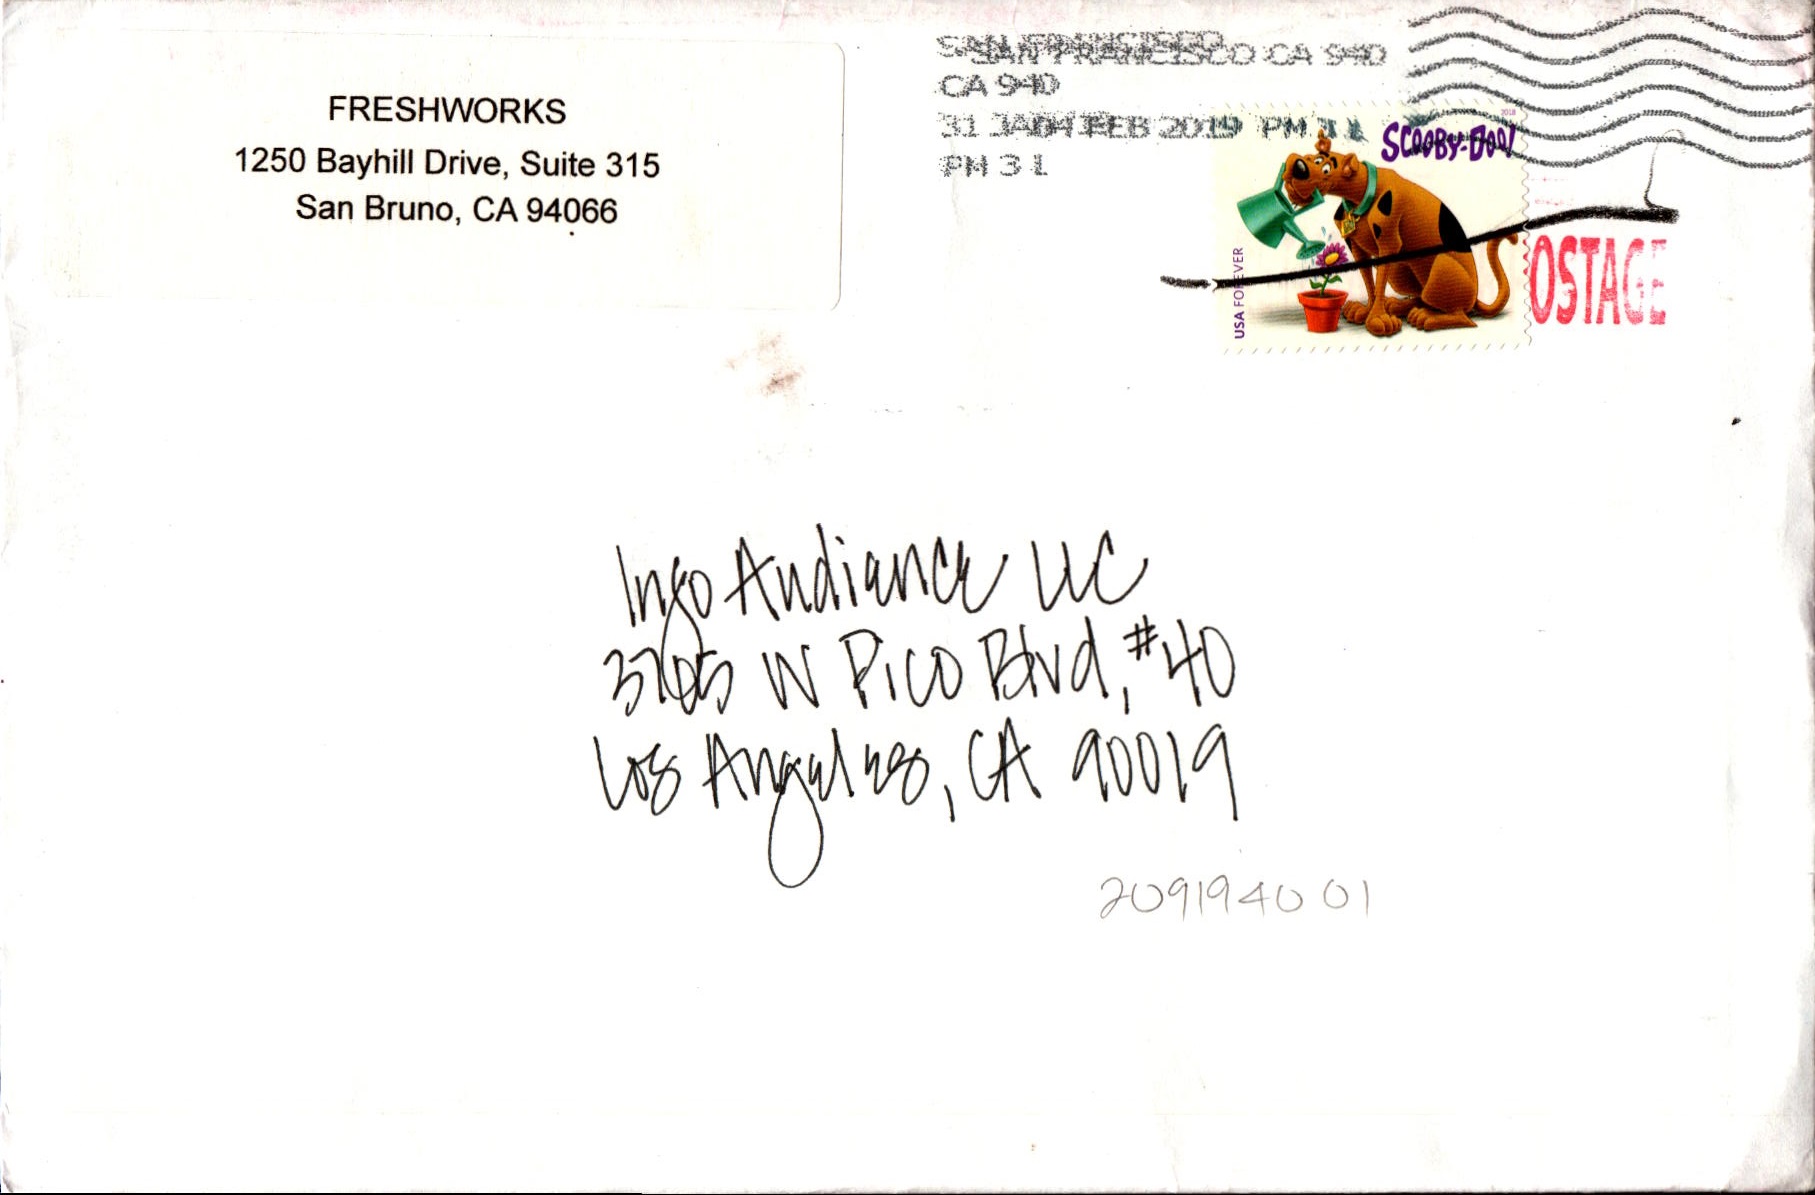 FRESHWORKS
1250 Bayhill Drive, Suite 315
San Bruno, CA 94066
SAN FRANCISCO CA 940
CA 940
04 FEB 2019 PM 3 L
PM 3 L
2018
SCOOBY-DOO!
USA FOREVER
OSTAGE
Info Audience LLC
3705 W Pico Blvd, #40
Los Angeles, CA 90019
2091940 01